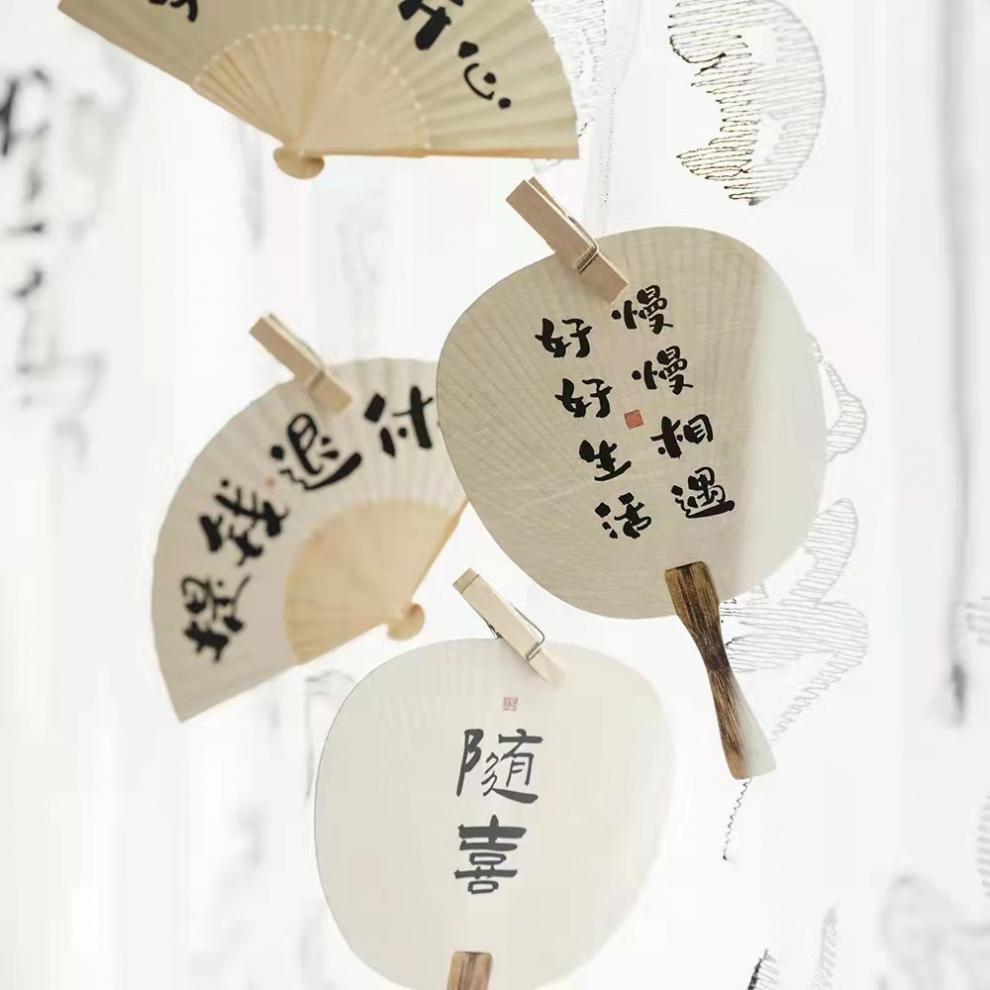 开心
慢慢相遇
好好生活
钱退休
隨喜